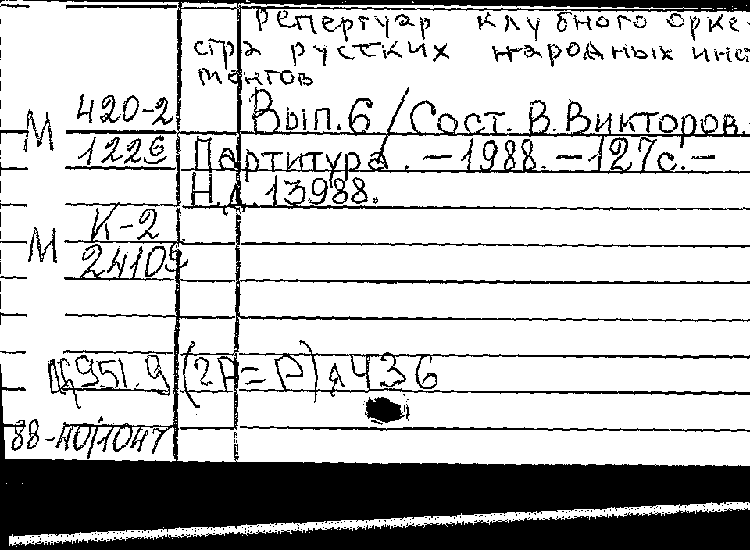 Репертуар клубного орке-
стра русских народных инст
ментов
М 420-2 Вып.6 / Сост. В. Викторов.
122б Партитура. – 1988. – 127с. –
Н.д. 13988.
М К-2
2410
Щ951.9 (2Р=Р) я436
88-40/1047